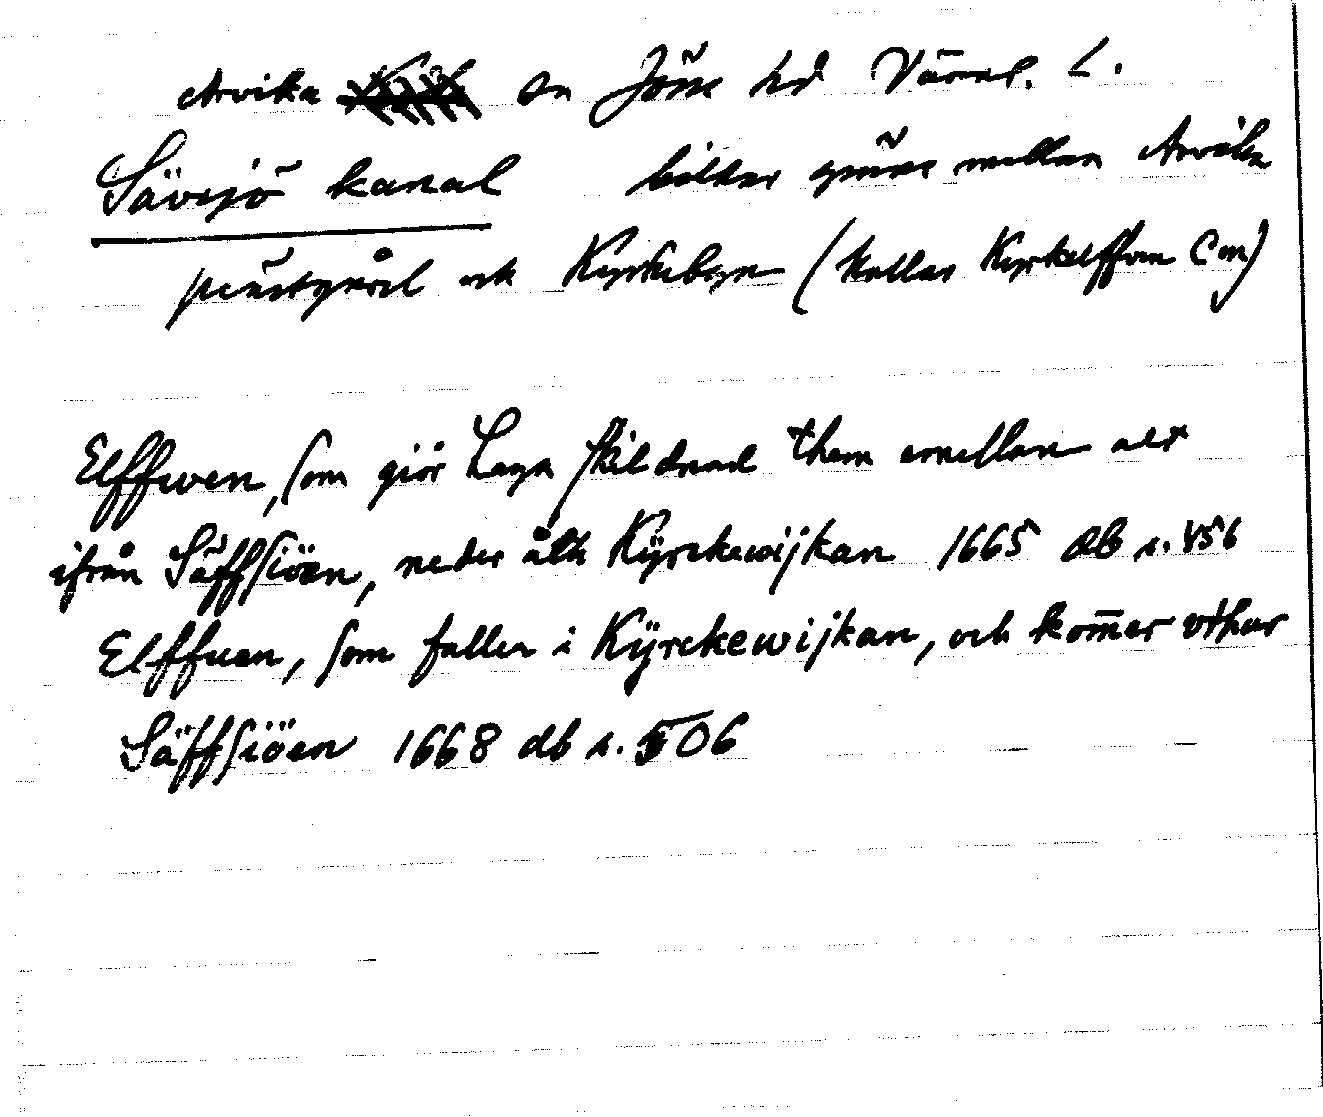 Arvika sn Jösse hd Värml. L.
Sävsjö kanal bildar gräns mellan Arvika
prästgård och Kyrkebyn (kallas Kyrkelffven C m)
Elffwen, som giör Laga skildnad them emellan alt
ifrån Säffsiöen, neder åth Kÿrckewijkan 1665 db s. 456
Elffuen, som faller i Kÿrckewijkan, och kom̅er vthur
Säffsiöen 1668 db s. 506